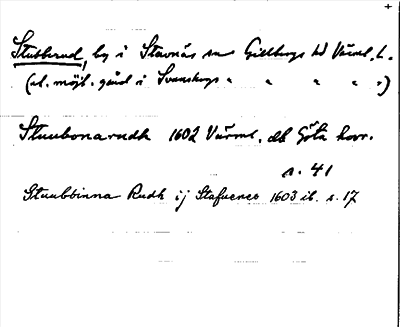 Stubberud, by i Stavnäs sn Gillbergs hd Värml. l.
(el. möjl. gård i Svanskogs " " " " ")
Stuubonarudh 1602 Värml. Göta korr.
s. 41
Stuubbinna Rudh ij Stafuenes 1603 ib. s. 17